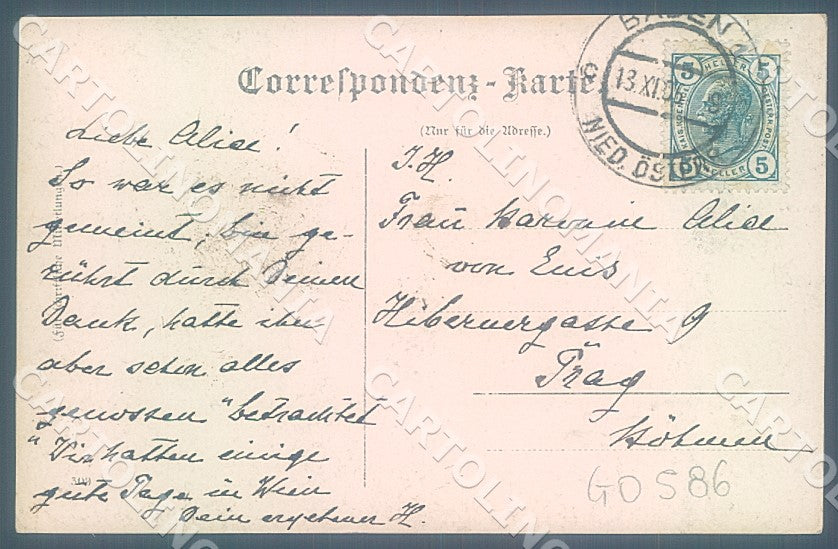 Correspondenz-Karte.
(Nur für die Adresse.)
BADEN 1
13 XI 06
NIED. ÖST
5 HELLER 5
KAIS. KOENIGL.
OESTERR. POST
5 HELLER 5
Liebe Alice!
So war es nicht
gemeint; bin ge-
rührt durch Deinen
Dank, hatte ihn
aber schon alles
genossen "betrachtet"
Wir hatten einige
gute Tage in Wien
Dein ergebener H.
I. H.
Frau Baronin Alice
von Enis
Hibernergasse 9
Prag
Böhmen
309
GOS86
CARTOLINOMANIA